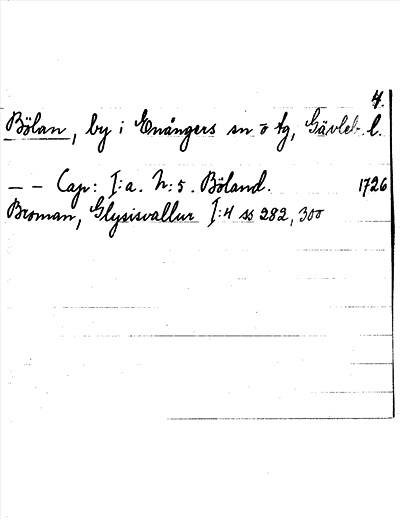 4.
Bölan, by i Enångers sn ö tg, Gävleb. l.
— — Cap: I:a. h:5. Böland. 1726
Broman, Glysisvallur I:4 ss 282, 300